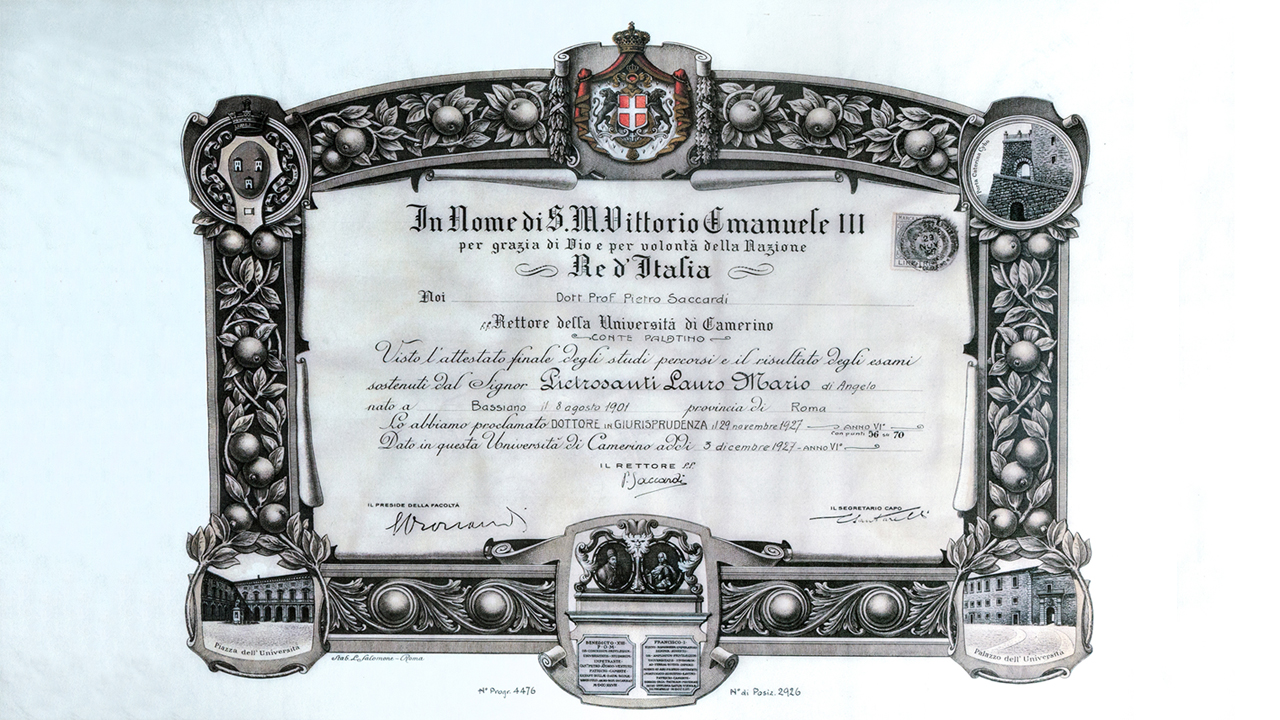 In Nome di S. M. Vittorio Emanuele III
per grazia di Dio e per volontà della Nazione
Re d'Italia
Noi Dott Prof. Pietro Saccardi
f.f. Rettore della Università di Camerino
CONTE PALATINO
Visto l'attestato finale degli studi percorsi e il risultato degli esami
sostenuti dal Signor Pietrosanti Lauro Mario di Angelo
nato a Bassiano il 8 agosto 1901 provincia di Roma
Lo abbiamo proclamato DOTTORE IN GIURISPRUDENZA il 29 novembre 1927 - ANNO VI°
con punti 56 su 70
Dato in questa Università di Camerino addì 3 dicembre 1927 - ANNO VI°
IL RETTORE f.f.
P. Saccardi
IL PRESIDE DELLA FACOLTÁ
IL SEGRETARIO CAPO
Piazza dell'Università
Palazzo dell'Università
BENEDICTO XIII
P.O.M.
FRANCISCO I.
Stab. L. Salomone - Roma
N° Progr. 4476
N° di Posiz. 2926